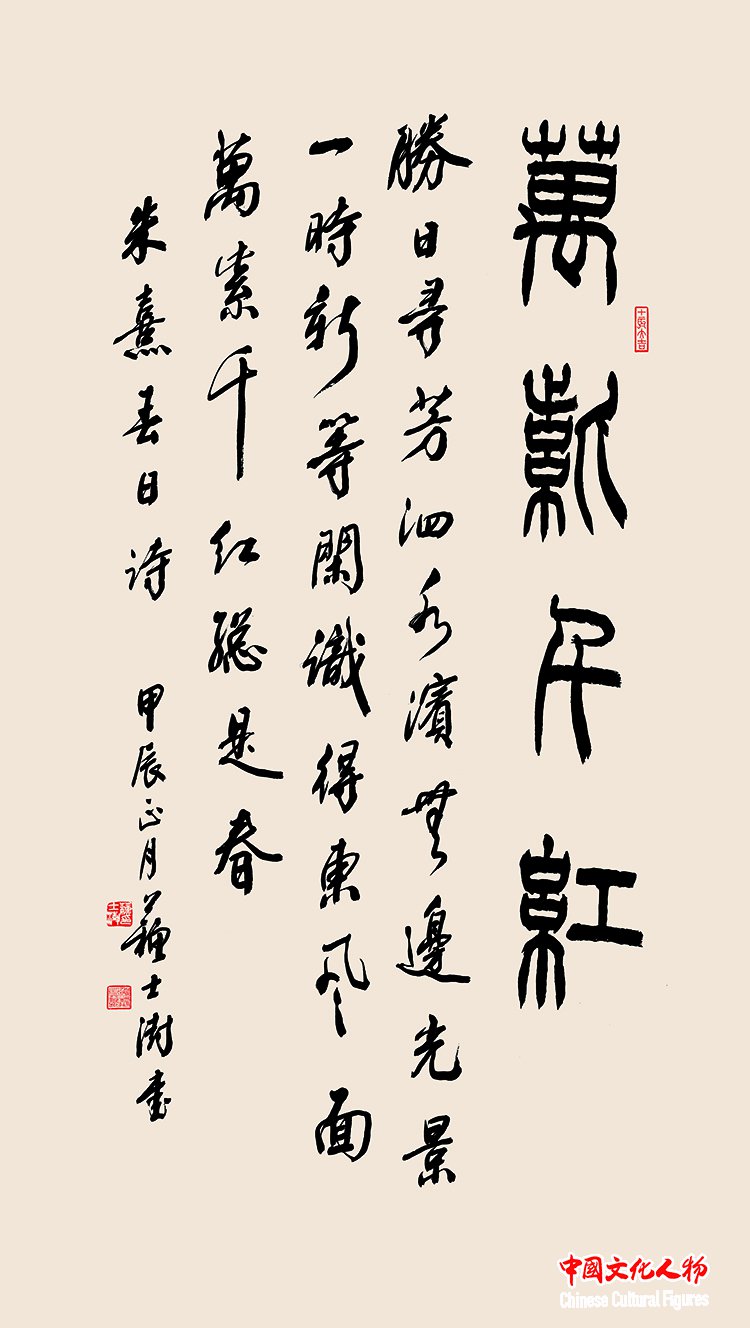 萬紫千紅
勝日尋芳泗水濱無邊光景
一時新等閑識得東風面
萬紫千紅總是春
朱熹春日詩 甲辰正月蘇士澍書
中國文化人物
Chinese Cultural Figures